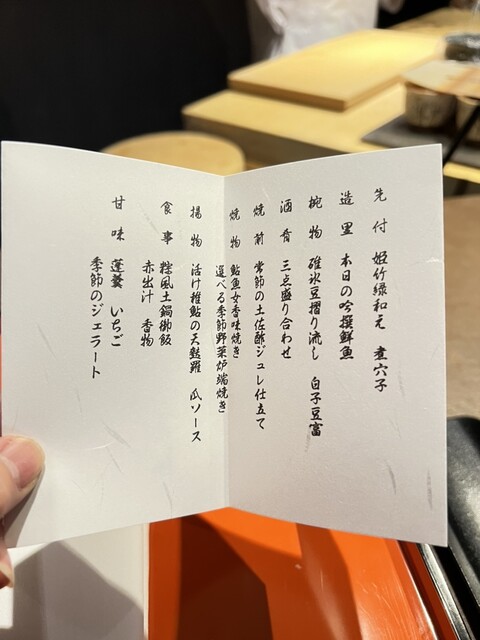 先付 姫竹緑和え 煮穴子
造里 本日の吟撰鮮魚
椀物 碓氷豆摺り流し 白子豆富
酒肴 三点盛り合わせ
焼前 常節の土佐酢ジュレ仕立て
焼物 鮎魚女香味焼き
選べる季節野菜炉端焼き
揚物 活け稚鮎の天麩羅 瓜ソース
食事 粽風土鍋御飯
赤出汁 香物
甘味 蓬羹 いちご
季節のジェラート